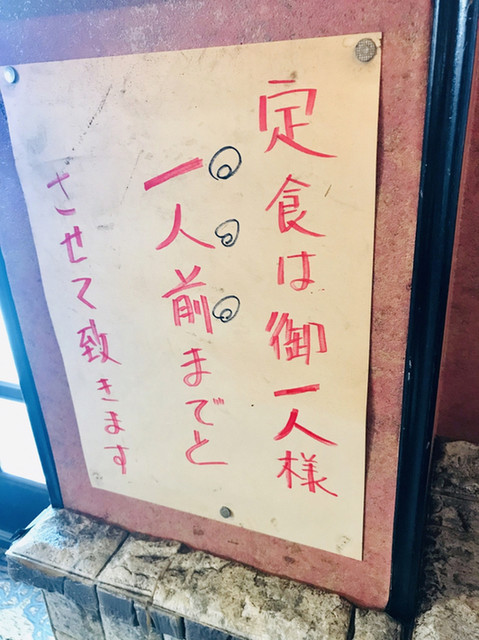 定食は御一人様
一人前までと
させて致きます